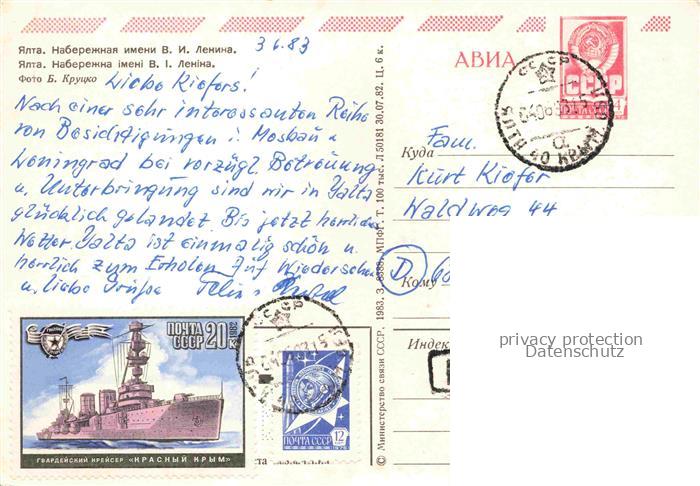 Ялта. Набережная имени В. И. Ленина.
Ялта. Набережна імені В. І. Леніна.
Фото Б. Круцко
3.6.83
Liebe Kiefers!
Nach einer sehr interessanten Reihe
von Besichtigungen i. Moskau u.
Leningrad bei vorzügl. Betreuung
u. Unterbringung sind wir in Yalta
glücklich gelandet. Bis jetzt herrliches
Wetter. Yalta ist einmalig schön u.
herrlich zum Erholen. Auf Wiedersehen
u. liebe Grüße Felix u.
АВИА
СССР
Куда
Fam.
Kurt Kiefer
Waldweg 44
Кому
D
Индекс
© Министерство связи СССР, 1983, З. 8388, МПФГ, Т. 100 тыс. Л 50181 30.07.82. Ц. 6 к.
privacy protection
Datenschutz
ПОЧТА 20К
СССР
1982
ГВАРДЕЙСКИЙ КРЕЙСЕР «КРАСНЫЙ КРЫМ»
ПОЧТА СССР 12
1976